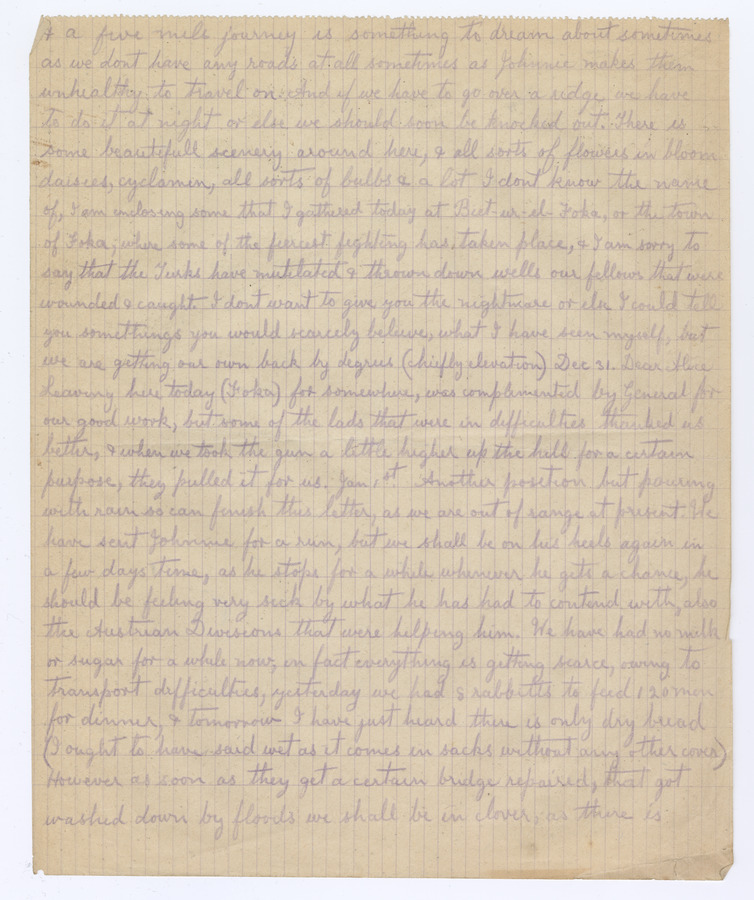 & a five mile journey is something to dream about sometimes
as we dont have any roads at all sometimes as Johnnie makes them
unhealthy to travel on. And if we have to go over a ridge we have
to do it at night or else we should soon be knocked out. There is
some beautifull scenery around here, & all sorts of flowers in bloom
daisies, cyclamen, all sorts of bulbs & a lot I dont know the name
of, I am enclosing some that I gathered today at Biet-ur-el-Foka, or the town
of Foka, where some of the fiercest fighting has taken place, & I am sorry to
say that the Turks have mutilated & thrown down wells our fellows that were
wounded & caught. I dont want to give you the nightmare or else I could tell
you somethings you would scarcely believe, what I have seen myself, but
we are getting our own back by degrees (chiefly elevation) Dec 31. Dear Alice
Leaving here today (Foka) for somewhere, was complimented by General for
our good work, but some of the lads that were in difficulties thanked us
better, & when we took the gun a little higher up the hill for a certain
purpose, they pulled it for us. Jan 1st Another position but pouring
with rain so can finish this letter, as we are out of range at present. We
have sent Johnnie for a run, but we shall be on his heels again in
a few days time, as he stops for a while whenever he gets a chance, he
should be feeling very sick by what he has had to contend with, also
the Austrian Divisions that were helping him. We have had no milk
or sugar for a while now, in fact everything is getting scarce, owing to
transport difficulties, yesterday we had 8 rabbitts to feed 120 men
for dinner, & tomorrow I have just heard there is only dry bread
(I ought to have said wet as it comes in sacks without any other cover)
However as soon as they get a certain bridge repaired, that got
washed down by floods we shall be in clover, as there is